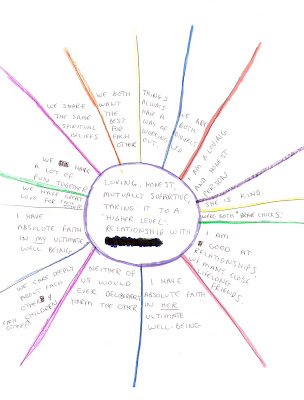 LOVING, HONEST,
MUTUALLY SUPPORTIVE,
TAKING IT TO A
"HIGHER LEVEL"
RELATIONSHIP WITH
THINGS
ALWAYS
HAVE A
WAY OF
WORKING
OUT.
WE ARE
BOTH
I AM A LOVING
AND HONEST
PERSON
SHE IS KIND.
WE'RE BOTH CHICKS!
I AM
GOOD AT
RELATIONSHIPS,
W/ MANY CLOSE
LIFELONG
FRIENDS.
I HAVE
ABSOLUTE FAITH
IN HER
ULTIMATE
WELL-BEING
NEITHER OF
US WOULD
EVER DELIBERATELY
HARM THE OTHER
WE CARE DEEPLY
ABOUT EACH
OTHER
EACH
OTHERS
CHILDREN
I HAVE
ABSOLUTE FAITH
IN MY ULTIMATE
WELL BEING
WE HAVE GREAT
LOVE FOR
WE HAVE
A LOT OF
FUN TOGETHER
WE SHARE
THE SAME
SPIRITUAL
BELIEFS
WE BOTH
WANT
THE
BEST
FOR
EACH
OTHER